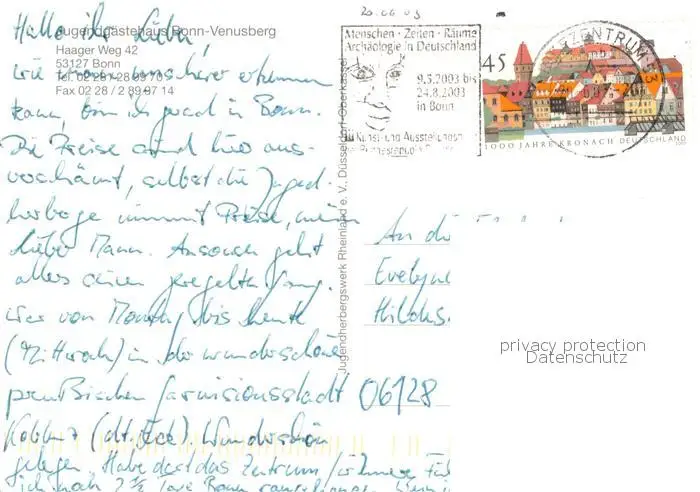 20.06.03
Jugendgästehaus Bonn-Venusberg
Haager Weg 42
53127 Bonn
Tel. 02 28 / 28 99 70
Fax 02 28 / 2 89 97 14
Hallo ihr Lieben,
wie man unschwer erkennen
kann, bin ich grad in Bonn.
Die Preise sind hier aus-
verschämt, selbst die Jugend-
herberge nimmt Preise, mein
lieber Mann. Ansonsten geht
alles seinen geregelten Gang.
War von Montag bis heute
(Mittwoch) in der wunderschönen
preußischen Garnisonsstadt
Koblenz (dt. Eck). Wunderschön
gelegen. Habe dort das Zentrum
ich noch 2 1/2 Tage Bonn
Menschen · Zeiten · Räume
Archäologie in Deutschland
9.5.2003 bis
24.8.2003
in Bonn
Kunst- und Ausstellungsh
45
1000 JAHRE KRONACH DEUTSCHLAND
BRIEFZENTRUM 53
Jugendherbergswerk Rheinland e. V., Düsseldorf-Oberkassel
An die
Evelyne
Hildes.
06128
privacy protection
Datenschutz